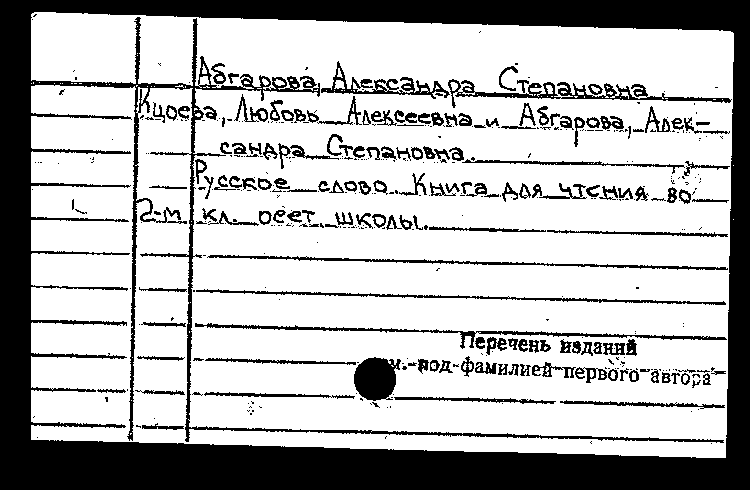 Абгарова, Александра Степановна
Кцоева, Любовь Алексеевна и Абгарова, Алек-
сандра Степановна.
Русское слово. Книга для чтения во
2-м кл. осет. школы.
Перечень изданий
см. под фамилией первого автора